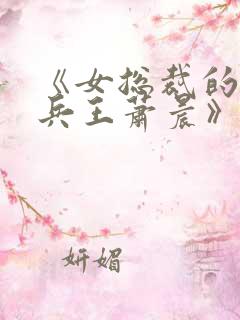 《女总裁的
兵王萧晨》
妍媚